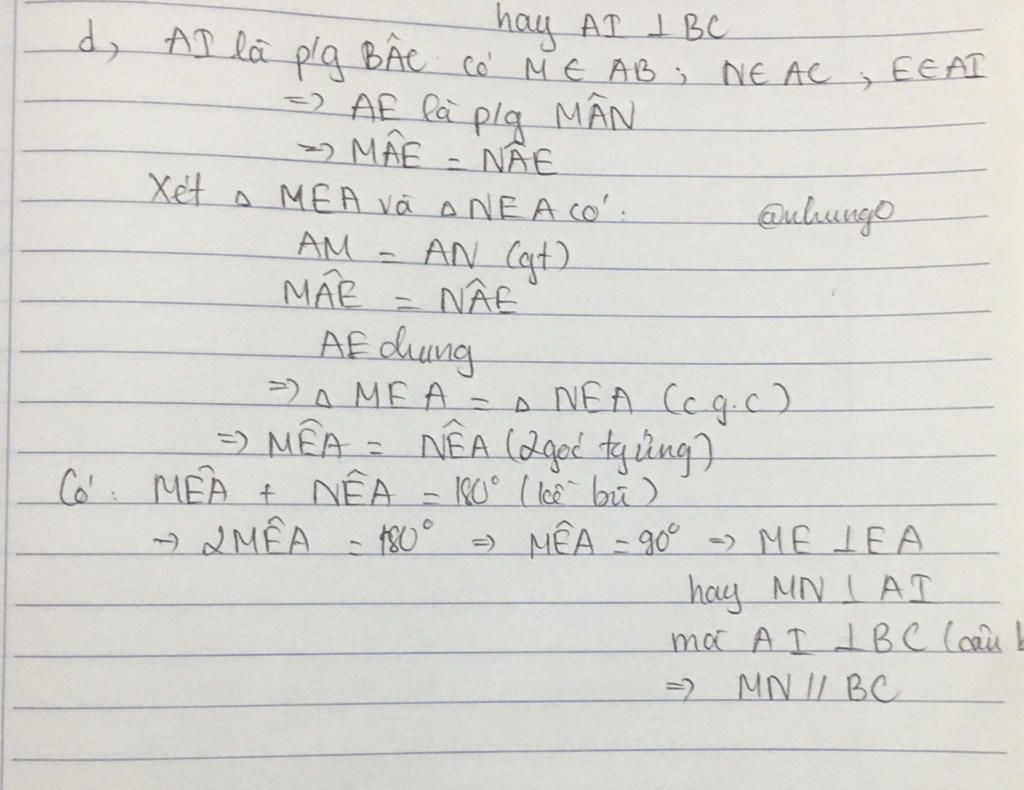 hay AI ⊥ BC
d, AI là p/g BÂC có M ∈ AB ; N ∈ AC , E ∈ AI
=> AE là p/g MÂN
=> MÂE = NÂE
Xét △ MEA và △ NEA có:
@nhung0
AM = AN (gt)
MÂE = NÂE
AE chung
=> △ MEA = △ NEA (c.g.c)
=> MÊA = NÊA (2 góc tg ứng)
Có: MÊA + NÊA = 180° (kề bù)
-> 2MÊA = 180° => MÊA = 90° => ME ⊥ EA
hay MN ⊥ AI
mà AI ⊥ BC (câu
=> MN // BC